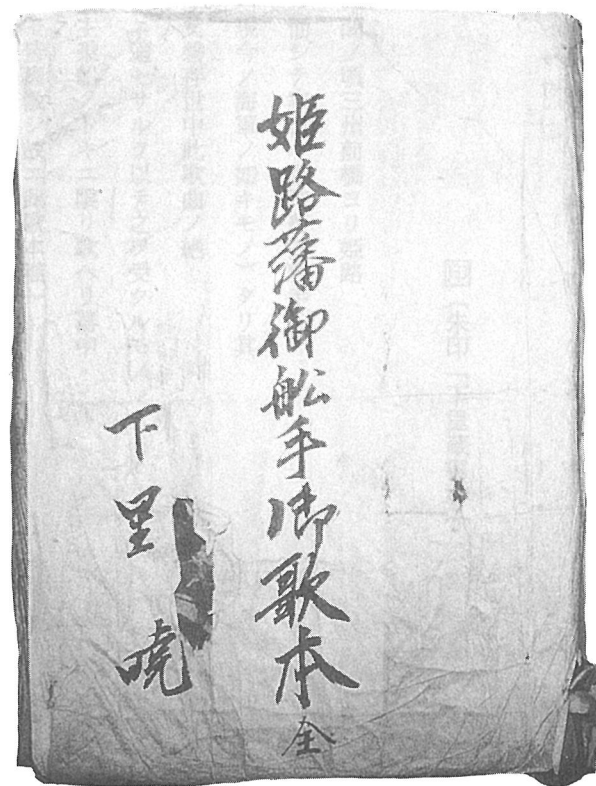 姫路藩御舩手御歌本 全
下里 暁